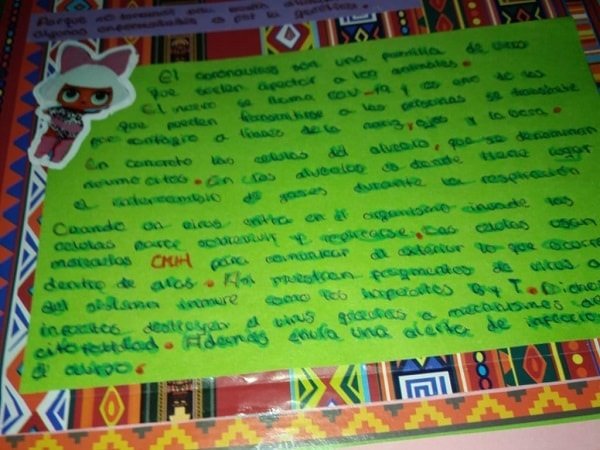 Porque no tenemos una buena
algunas enfermedades es por la genética.
El coronavirus son una familia de virus
que suelen afectar a los animales.
El nuevo se llama COV-19 y es uno de los
que pueden transmitirse a las personas se transmite
por contagio a traves de la nariz, ojos y la boca.
En concreto las celulas del alveolo, que se denominan
neumocitos. En los alveolos es donde tiene lugar
el intercambio de gases durante la respiración
Cuando un virus entra en el organismo invade las
celulas para sobrevivir y replicarse. Las celulas usan
moleculas CMH para comunicar al exterior lo que ocurre
dentro de ellas. Así muestran fragmentos de virus a
del sistema inmune como los linfocitos B y T. Dichos
linfocitos destruyen el virus gracias a mecanismos de
citotoxidad. Además envía una alerta de infección
el cuerpo.